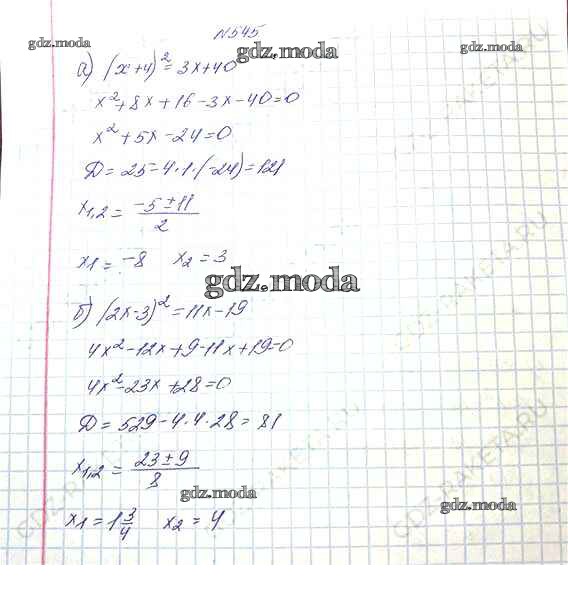 №545
gdz.moda
gdz.moda
gdz.moda
а) (x+4)² = 3x+40
x²+8x+16-3x-40=0
x²+5x-24=0
Д=25-4·1·(-24)=121
x1,2 = (-5±11)/2
x1 = -8 x2 = 3
gdz.moda
б) (2x-3)²=11x-19
4x²-12x+9-11x+19=0
4x²-23x+28=0
Д=529-4·4·28=81
x1,2 = (23±9)/8
gdz.moda
gdz.moda
gdz.moda
x1 = 1 3/4 x2 = 4
GDZ-RAKETA.RU
GDZ-RAKETA.RU